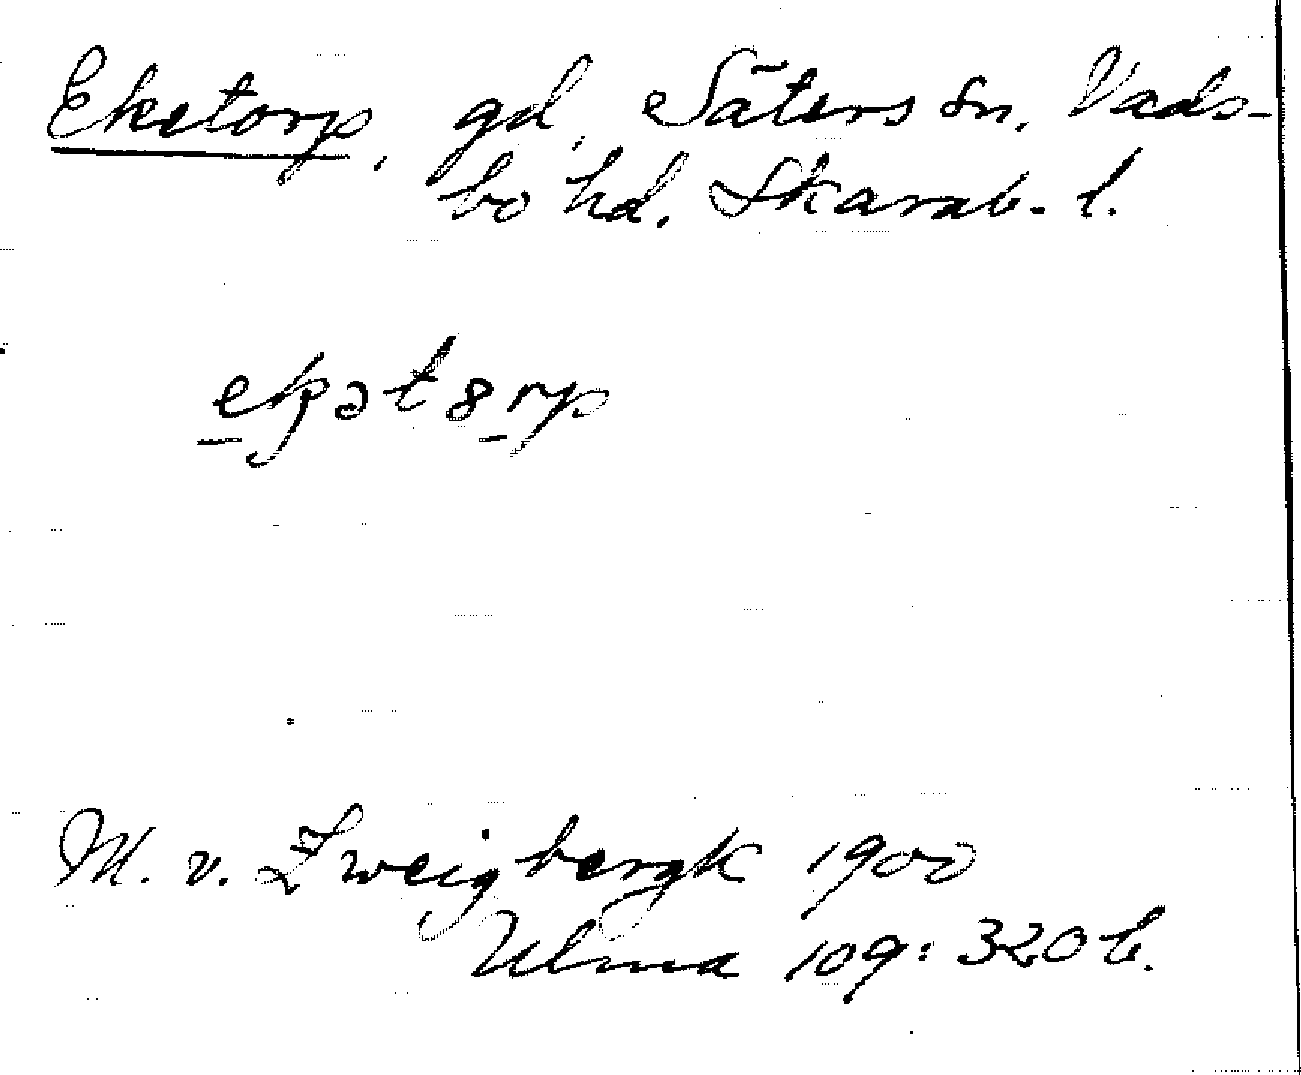 Eketorp, gd, Säters sn, Vads-
bo hd. Skarab. l.
ekət8rp
M. v. Zweigbergk 1900
Ulma 109: 320 b.